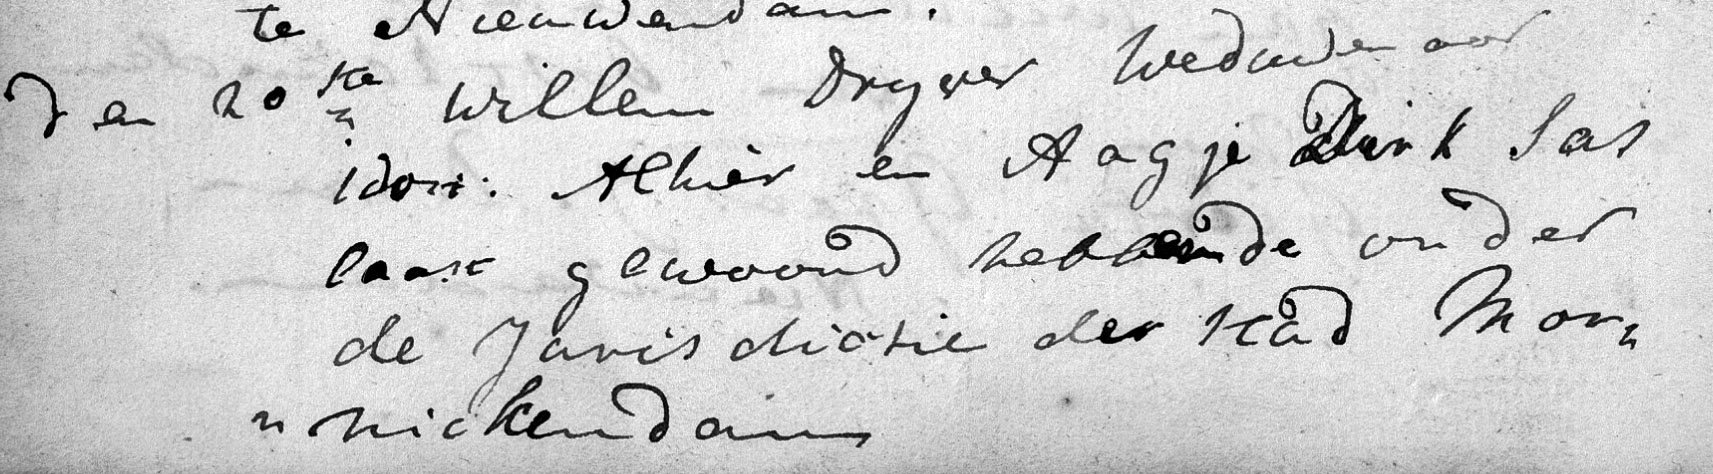 te Nieuwendam.
Den 20ste Willem Dryver Weduwenaar
idon: Alhier en Aagje Dirk Sas
laast gewoond hebbende onder
de Jurisdictie der stad Mon„
„nickendam